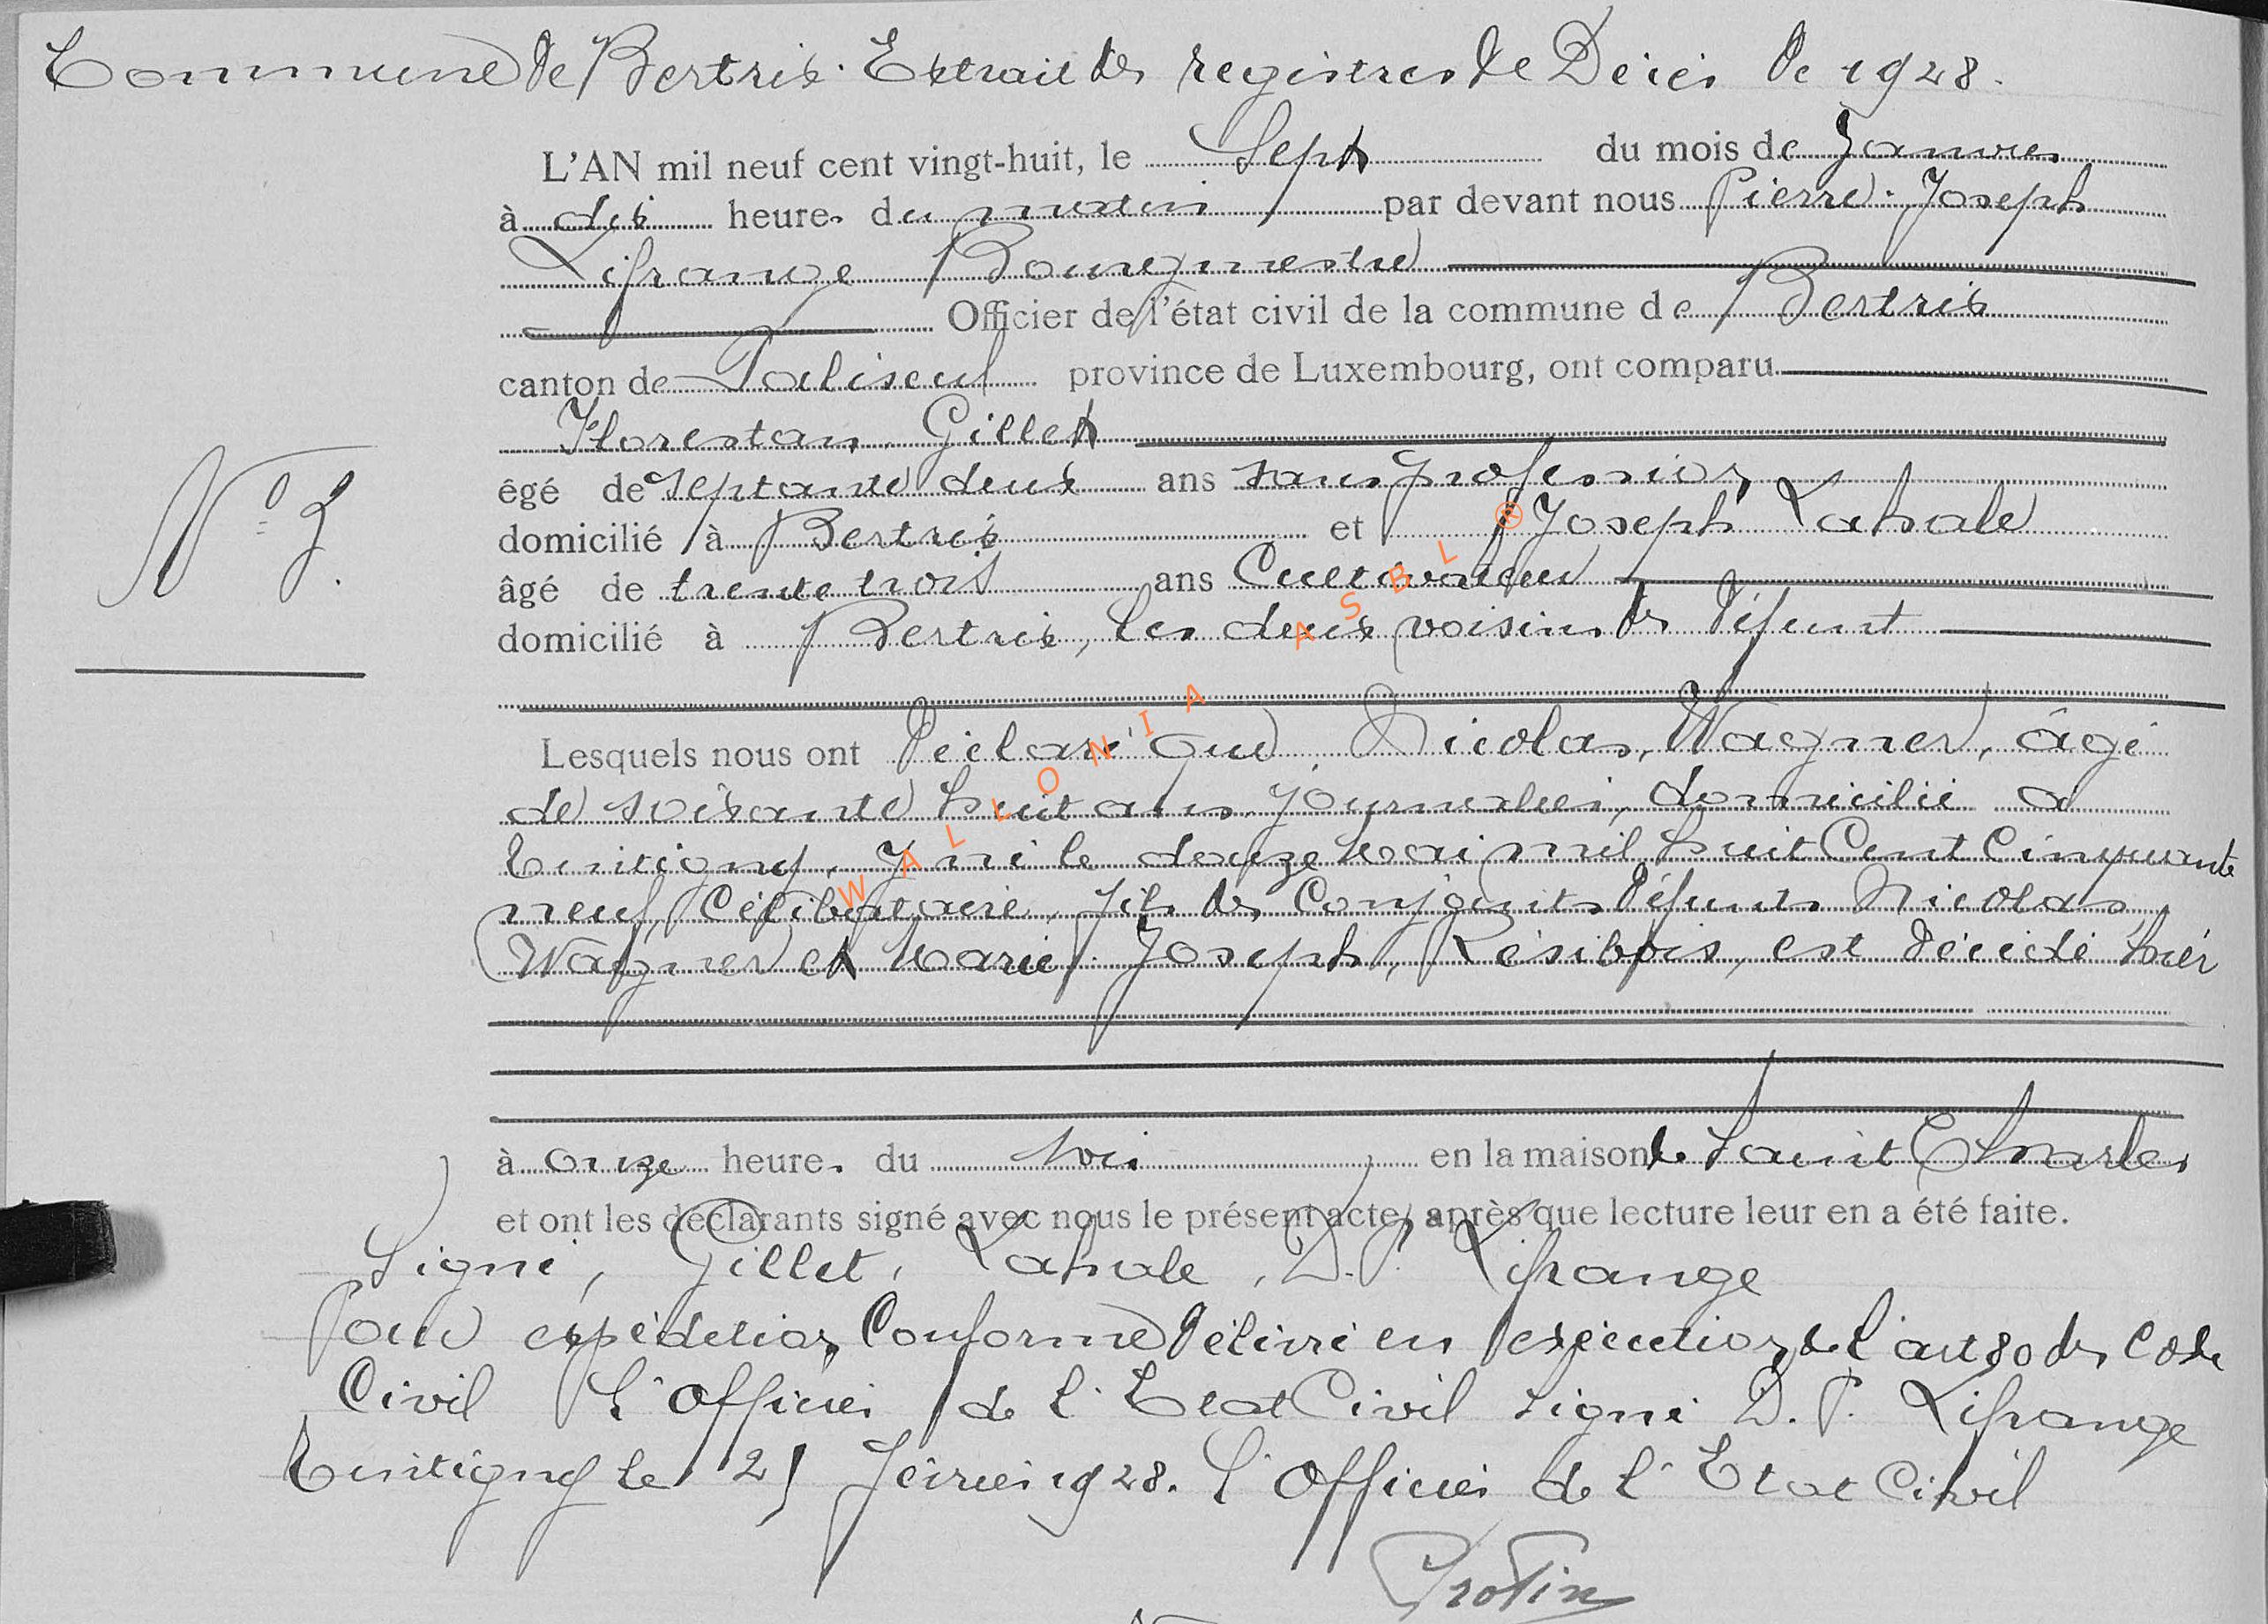 Commune de Bertrix. Extrait des registres de Décès de 1928.
L'AN mil neuf cent vingt-huit, le Sept du mois de Janvier
à dix heures du matin par devant nous Pierre-Joseph
Lifrange Bourgmestre
Officier de l'état civil de la commune de Bertrix
canton de Paliseul province de Luxembourg, ont comparu
Florestan Gillet
égé de septante deux ans sans profession
domicilié à Bertrix et Joseph Lahale
N° 3.
âgé de trente trois ans Cultivateur
domicilié à Bertrix, les deux voisins du défunt
Lesquels nous ont déclaré que Nicolas, Wagner, âgé
de soixante huit ans, journalier, domicilié à
Tintigny, y né le douze mai mil huit Cent Cinquante
neuf, Célibataire, fils des Conjoints défunts Nicolas
Wagner et Marie-Joseph, Résibois, est décédé hier
à onze heures du soir en la maison de Saint Charles
et ont les déclarants signé avec nous le présent acte, après que lecture leur en a été faite.
Signé, Gillet, Lahale, D. P. Lifrange
Pour expédition Conforme délivré en exécution de l'art 80 du Code
Civil L'Officier de l'Etat Civil signé D. P. Lifrange
Tintigny le 25 Février 1928. L'Officier de l'Etat Civil
Protin
WALLONIA ASBL ®